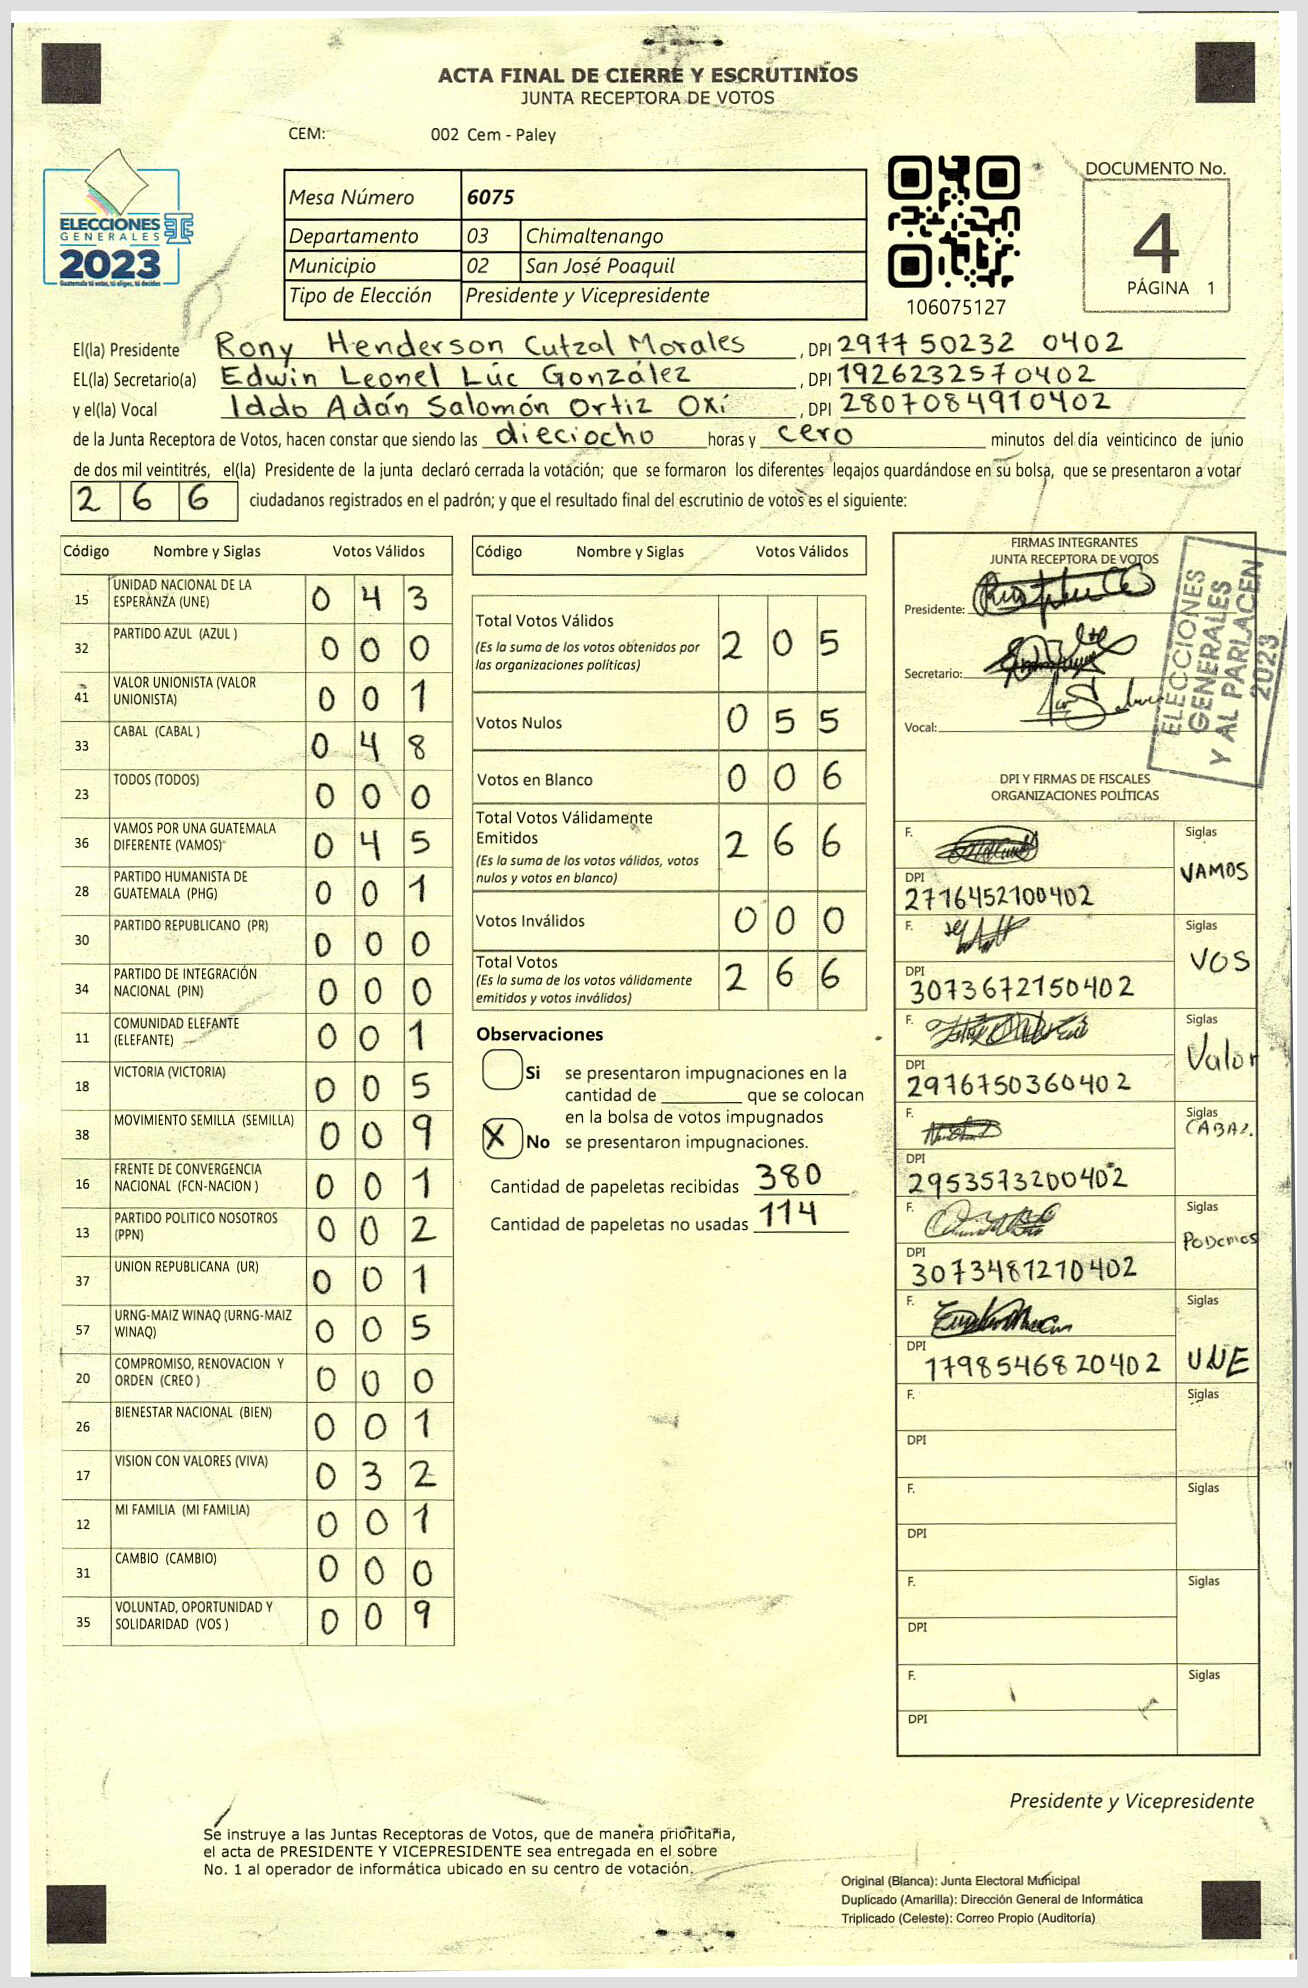 ACTA FINAL DE CIERRE Y ESCRUTINIOS
JUNTA RECEPTORA DE VOTOS
CEM: 002 Cem - Paley
ELECCIONES
GENERALES
2023
Guatemala tú votas, tú eliges, tú decides
Mesa Número 6075
Departamento 03 Chimaltenango
Municipio 02 San José Poaquil
Tipo de Elección Presidente y Vicepresidente
106075127
DOCUMENTO No.
4
PÁGINA 1
El(la) Presidente Rony Henderson Cutzal Morales , DPI 2977 50232 0402
EL(la) Secretario(a) Edwin Leonel Lúc González , DPI 1926232570402
y el(la) Vocal Iddo Adán Salomón Ortiz Oxí , DPI 2807084910402
de la Junta Receptora de Votos, hacen constar que siendo las dieciocho horas y cero minutos del día veinticinco de junio
de dos mil veintitrés, el(la) Presidente de la junta declaró cerrada la votación; que se formaron los diferentes legajos quardándose en su bolsa, que se presentaron a votar
266 ciudadanos registrados en el padrón; y que el resultado final del escrutinio de votos es el siguiente:
Código Nombre y Siglas Votos Válidos
15 UNIDAD NACIONAL DE LA ESPERANZA (UNE) 0 4 3
32 PARTIDO AZUL (AZUL ) 0 0 0
41 VALOR UNIONISTA (VALOR UNIONISTA) 0 0 1
33 CABAL (CABAL ) 0 4 8
23 TODOS (TODOS) 0 0 0
36 VAMOS POR UNA GUATEMALA DIFERENTE (VAMOS) 0 4 5
28 PARTIDO HUMANISTA DE GUATEMALA (PHG) 0 0 1
30 PARTIDO REPUBLICANO (PR) 0 0 0
34 PARTIDO DE INTEGRACIÓN NACIONAL (PIN) 0 0 0
11 COMUNIDAD ELEFANTE (ELEFANTE) 0 0 1
18 VICTORIA (VICTORIA) 0 0 5
38 MOVIMIENTO SEMILLA (SEMILLA) 0 0 9
16 FRENTE DE CONVERGENCIA NACIONAL (FCN-NACION ) 0 0 1
13 PARTIDO POLITICO NOSOTROS (PPN) 0 0 2
37 UNION REPUBLICANA (UR) 0 0 1
57 URNG-MAIZ WINAQ (URNG-MAIZ WINAQ) 0 0 5
20 COMPROMISO, RENOVACION Y ORDEN (CREO ) 0 0 0
26 BIENESTAR NACIONAL (BIEN) 0 0 1
17 VISION CON VALORES (VIVA) 0 3 2
12 MI FAMILIA (MI FAMILIA) 0 0 1
31 CAMBIO (CAMBIO) 0 0 0
35 VOLUNTAD, OPORTUNIDAD Y SOLIDARIDAD (VOS ) 0 0 9
Código Nombre y Siglas Votos Válidos
Total Votos Válidos 2 0 5
(Es la suma de los votos obtenidos por
las organizaciones políticas)
Votos Nulos 0 5 5
Votos en Blanco 0 0 6
Total Votos Válidamente
Emitidos 2 6 6
(Es la suma de los votos válidos, votos
nulos y votos en blanco)
Votos Inválidos 0 0 0
Total Votos 2 6 6
(Es la suma de los votos válidamente
emitidos y votos inválidos)
Observaciones
Si se presentaron impugnaciones en la
cantidad de ________ que se colocan
en la bolsa de votos impugnados
X No se presentaron impugnaciones.
Cantidad de papeletas recibidas 380
Cantidad de papeletas no usadas 114
FIRMAS INTEGRANTES
JUNTA RECEPTORA DE VOTOS
Presidente:
Secretario:
Vocal:
ELECCIONES
GENERALES
Y AL PARLACEN
2023
DPI Y FIRMAS DE FISCALES
ORGANIZACIONES POLÍTICAS
F. Siglas
DPI VAMOS
2716452100402
F. Siglas
DPI VOS
3073672150402
F. Siglas
DPI Valor
2976750360402
F. Siglas
DPI CABAL.
2953573200402
F. Siglas
DPI PODEMOS
3073481210402
F. Siglas
DPI UNE
1798546820402
F. Siglas
DPI
F. Siglas
DPI
F. Siglas
DPI
F. Siglas
DPI
Presidente y Vicepresidente
Se instruye a las Juntas Receptoras de Votos, que de manera prioritaria,
el acta de PRESIDENTE Y VICEPRESIDENTE sea entregada en el sobre
No. 1 al operador de informática ubicado en su centro de votación.
Original (Blanca): Junta Electoral Municipal
Duplicado (Amarilla): Dirección General de Informática
Triplicado (Celeste): Correo Propio (Auditoría)